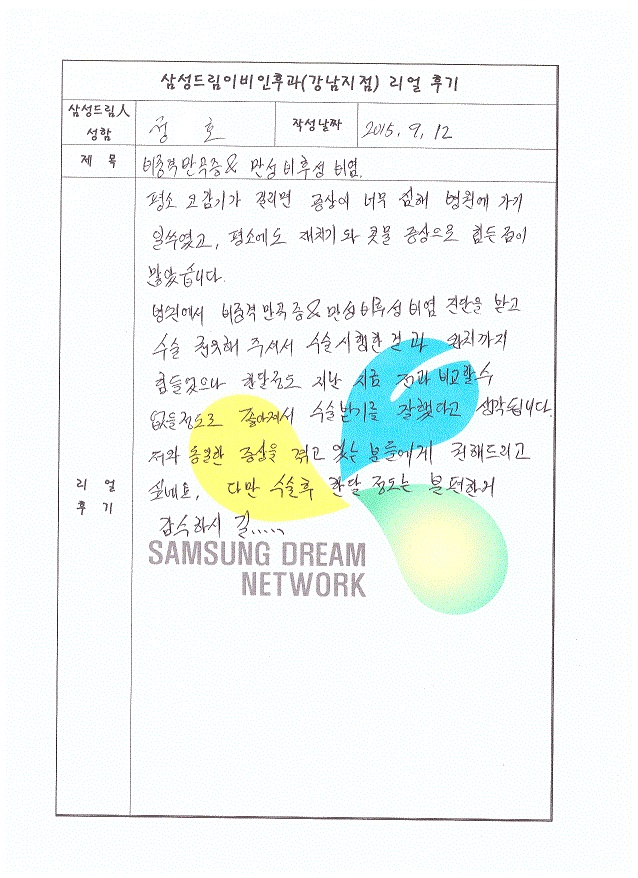 삼성드림이비인후과(강남지점) 리얼 후기
삼성드림人
성함
정 호
작성날짜
2015. 9. 12
제 목
비중격만곡증& 만성 비후성 비염.
평소 코감기가 걸리면 증상이 너무 심해 병원에 가기
일쑤였고, 평소에도 재채기와 콧물 증상으로 힘든점이
많았습니다.
병원에서 비중격만곡증&만성비후성비염 진단을 받고
수술 권유해 주셔서 수술시행한결과 까지
힘들었으나 한달정도 지난 지금 전과 비교할수
없을정도로 좋아져서 수술받기를 잘했다고 생각됩니다.
저와 동일한 증상을 겪고 있는 분들에게 권해드리고
싶네요, 다만 수술후 한달 정도는 불편한거
감수하시 길.....
리 얼
후 기
SAMSUNG DREAM
NETWORK